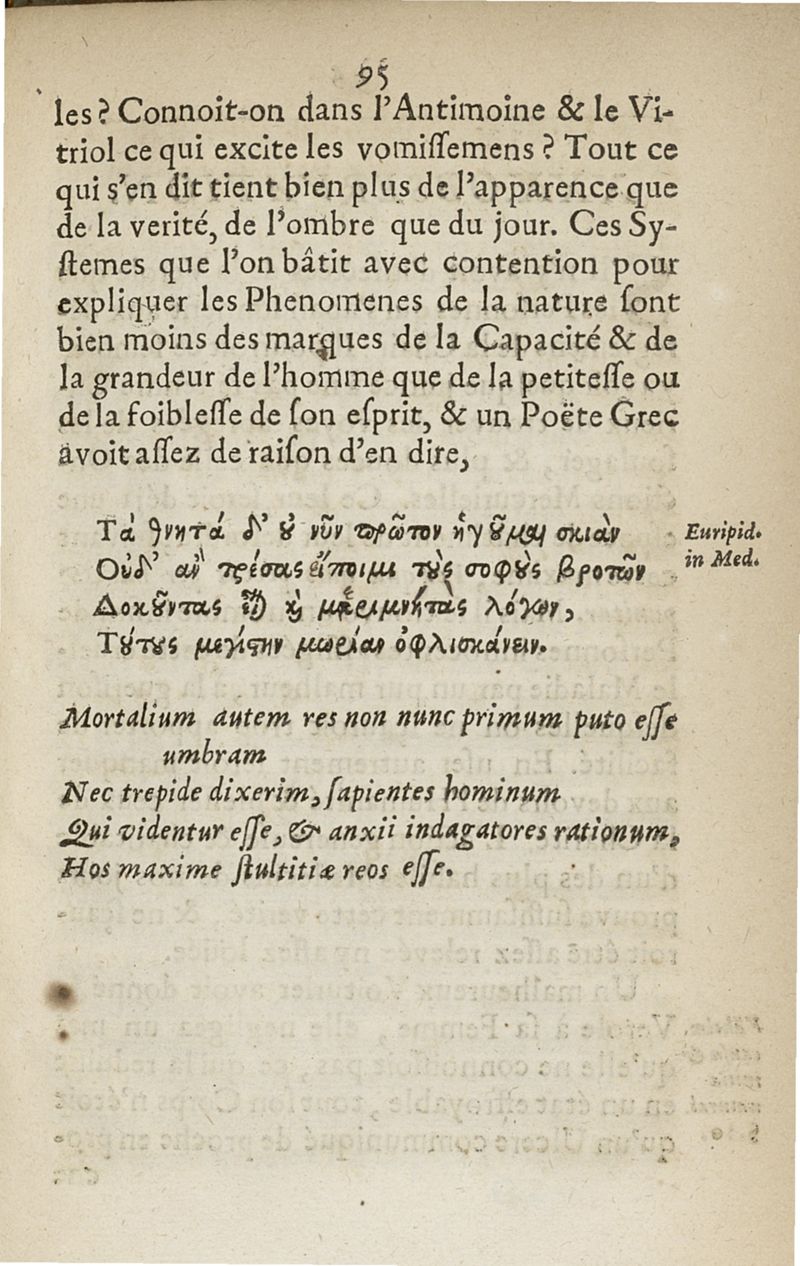 95
les ? Connoit-on dans l'Antimoine & le Vi-
triol ce qui excite les vomiſſemens ? Tout ce
qui s'en dit tient bien plus de l'apparence que
de la verité, de l'ombre que du jour. Ces Sy-
ſtemes que l'on bâtit avec contention pour
expliquer les Phenomenes de la nature ſont
bien moins des marques de la Capacité & de
la grandeur de l'homme que de la petiteſſe ou
de la foibleſſe de ſon eſprit, & un Poëte Grec
avoit aſſez de raiſon d'en dire,
Τὰ θνητά δ' ȣ νῦν πρῶτον ἡγȣ͂μαι σκιὰν Euripid.
Οὐδ' ἂν τρέσας εἴποιμι τȣ̀ς σοφȣ̀ς βροτῶν in Med.
Δοκȣ͂ντας εἶναι καὶ μεριμνητὰς λόγων,
Τȣ́τȣς μεγίϛην μωρίαν ὀφλισκάνειν.
Mortalium autem res non nunc primum puto eſſe
umbram
Nec trepide dixerim, ſapientes hominum
Qui videntur eſſe, & anxii indagatores rationum,
Hos maxime ſtultitiæ reos eſſe.